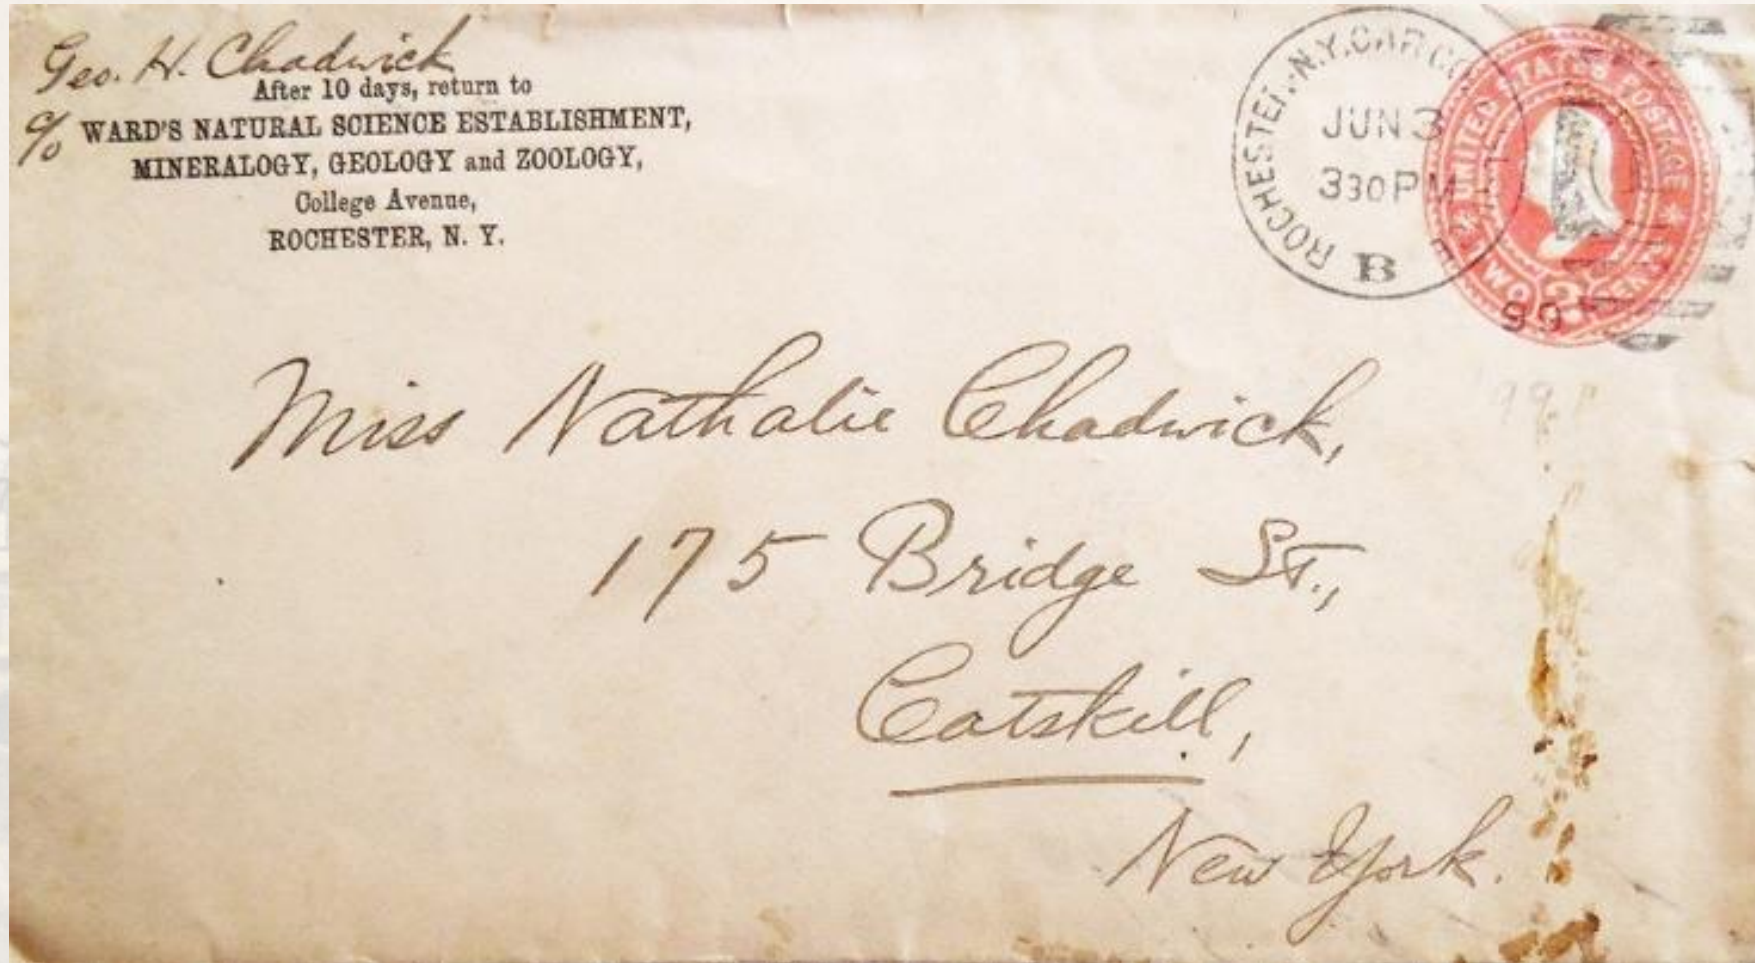 Geo. H. Chadwick
After 10 days, return to
c/o WARD'S NATURAL SCIENCE ESTABLISHMENT,
MINERALOGY, GEOLOGY and ZOOLOGY,
College Avenue,
ROCHESTER, N. Y.
ROCHESTER, N.Y.
JUN 3
330 PM
B
99
UNITED STATES POSTAGE
TWO 2 CENTS
Miss Nathalie Chadwick,
175 Bridge St.,
Catskill,
New York.